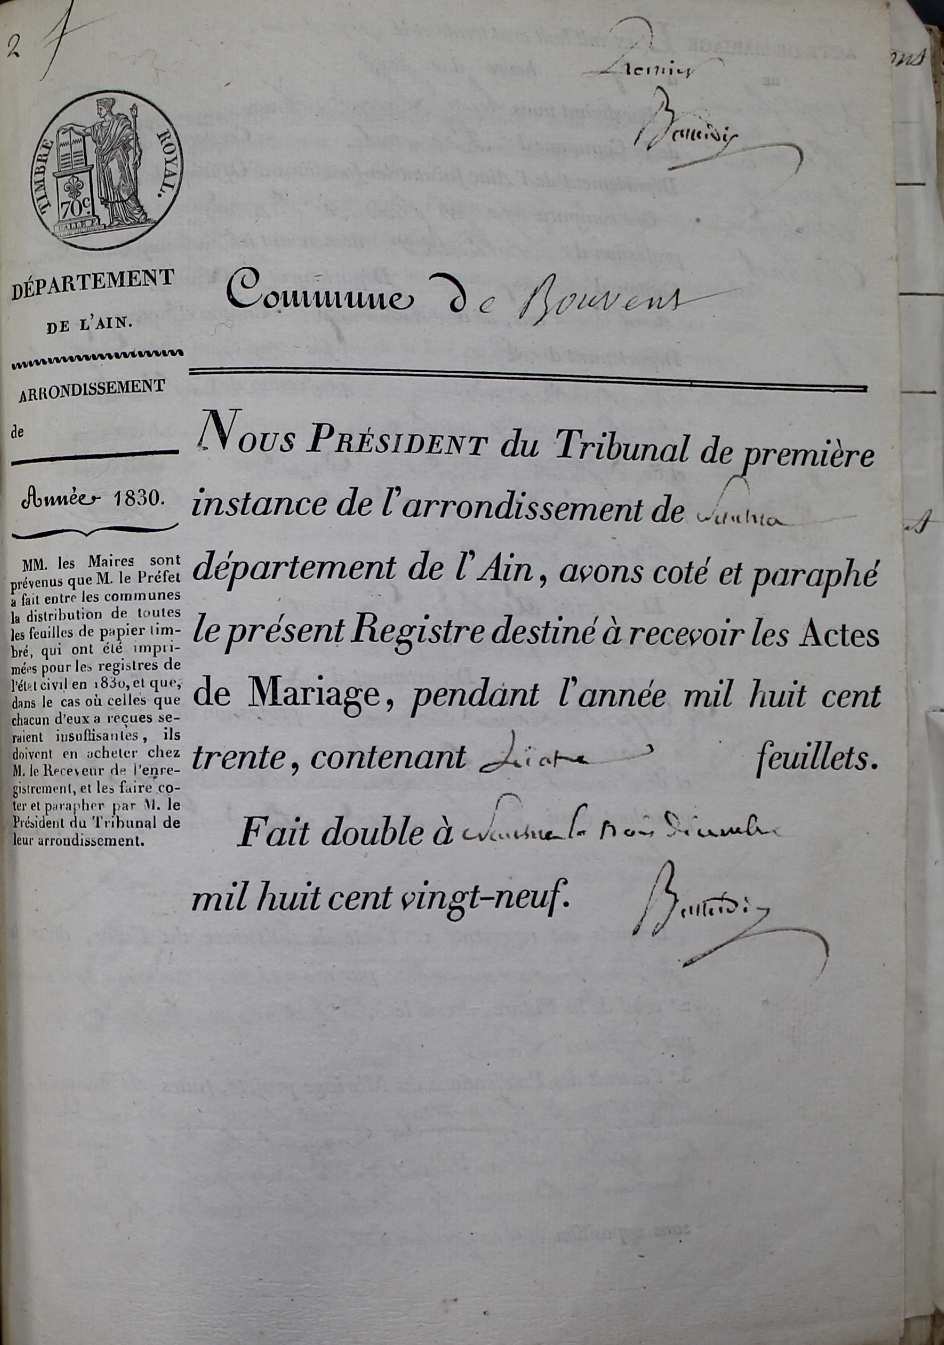 2
Premier
TIMBRE ROYAL.
70c
DÉPARTEMENT
DE L'AIN.
ARRONDISSEMENT
de
Année 1830.
MM. les Maires sont
prévenus que M. le Préfet
a fait entre les communes
la distribution de toutes
les feuilles de papier tim-
bré, qui ont été impri-
mées pour les registres de
l'état civil en 1830, et que,
dans le cas où celles que
chacun d'eux a reçues se-
raient insuffisantes, ils
doivent en acheter chez
M. le Receveur de l'enre-
gistrement, et les faire co-
ter et parapher par M. le
Président du Tribunal de
leur arrondissement.
Commune De Bouvent
NOUS PRÉSIDENT du Tribunal de première
instance de l'arrondissement de Nantua
département de l'Ain, avons coté et paraphé
le présent Registre destiné à recevoir les Actes
de Mariage, pendant l'année mil huit cent
trente, contenant feuillets.
Fait double à Nantua le trois Décembre
mil huit cent vingt-neuf.